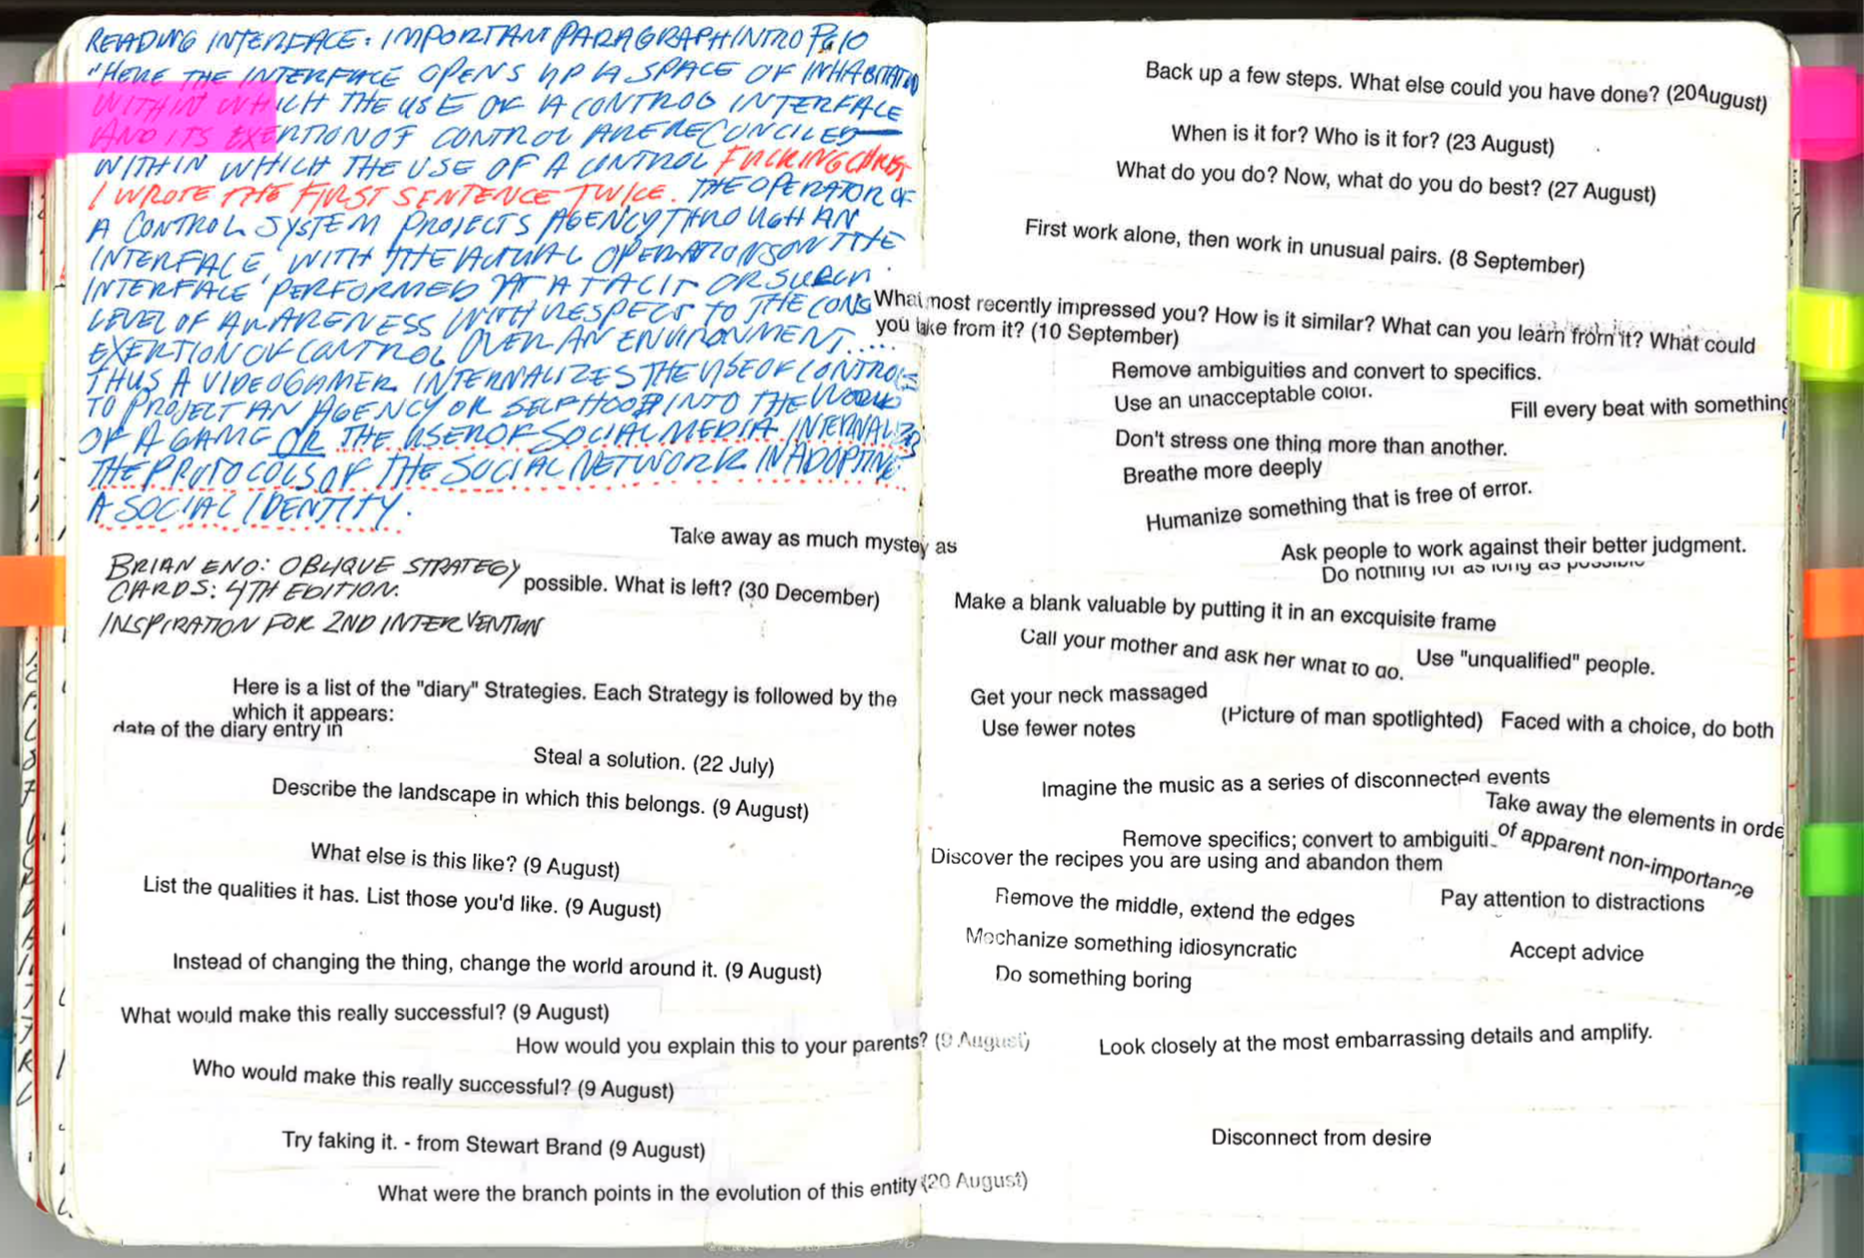 READING INTERFACE: IMPORTANT PARAGRAPH INTRO PG 10
"HERE THE INTERFACE OPENS UP A SPACE OF INHABITATIO
WITHIN WHICH THE USE OF A CONTROL INTERFACE
AND ITS EXERTION OF CONTROL ARE RECONCILED —
WITHIN WHICH THE USE OF A CONTROL FUCKING CHRIST
I WROTE THE FIRST SENTENCE TWICE. THE OPERATOR OF
A CONTROL SYSTEM PROJECTS AGENCY THROUGH AN
INTERFACE, WITH THE ACTUAL OPERATIONS ON THE
INTERFACE PERFORMED AT A TACIT OR
LEVEL OF AWARENESS WITH RESPECT TO THE CONS
EXERTION OF CONTROL OVER AN ENVIRONMENT.....
THUS A VIDEOGAMER INTERNALIZES THE USE OF CONTROLS
TO PROJECT AN AGENCY OR SELFHOOD INTO THE WORLD
OF A GAME OR THE USER OF SOCIAL MEDIA INTERNALIZES
THE PROTOCOLS OF THE SOCIAL NETWORK IN ADOPTING
A SOCIAL IDENTITY.
Take away as much mystey as
BRIAN ENO: OBLIQUE STRATEGY
CARDS: 4TH EDITION.
possible. What is left? (30 December)
INSPIRATION FOR 2ND INTERVENTION
Here is a list of the "diary" Strategies. Each Strategy is followed by the
which it appears:
date of the diary entry in
Steal a solution. (22 July)
Describe the landscape in which this belongs. (9 August)
What else is this like? (9 August)
List the qualities it has. List those you'd like. (9 August)
Instead of changing the thing, change the world around it. (9 August)
What would make this really successful? (9 August)
How would you explain this to your parents? (9 August)
Who would make this really successful? (9 August)
Try faking it. - from Stewart Brand (9 August)
What were the branch points in the evolution of this entity (20 August)
Back up a few steps. What else could you have done? (20August)
When is it for? Who is it for? (23 August)
What do you do? Now, what do you do best? (27 August)
First work alone, then work in unusual pairs. (8 September)
What most recently impressed you? How is it similar? What can you learn from it? What could
you take from it? (10 September)
Remove ambiguities and convert to specifics.
Use an unacceptable color.
Fill every beat with something
Don't stress one thing more than another.
Breathe more deeply
Humanize something that is free of error.
Ask people to work against their better judgment.
Do nothing for as long as possible
Make a blank valuable by putting it in an excquisite frame
Call your mother and ask her what to do.
Use "unqualified" people.
Get your neck massaged
(Picture of man spotlighted)
Faced with a choice, do both
Use fewer notes
Imagine the music as a series of disconnected events
Take away the elements in orde
of apparent non-importance
Remove specifics; convert to ambiguiti
Discover the recipes you are using and abandon them
Remove the middle, extend the edges
Pay attention to distractions
Mechanize something idiosyncratic
Accept advice
Do something boring
Look closely at the most embarrassing details and amplify.
Disconnect from desire